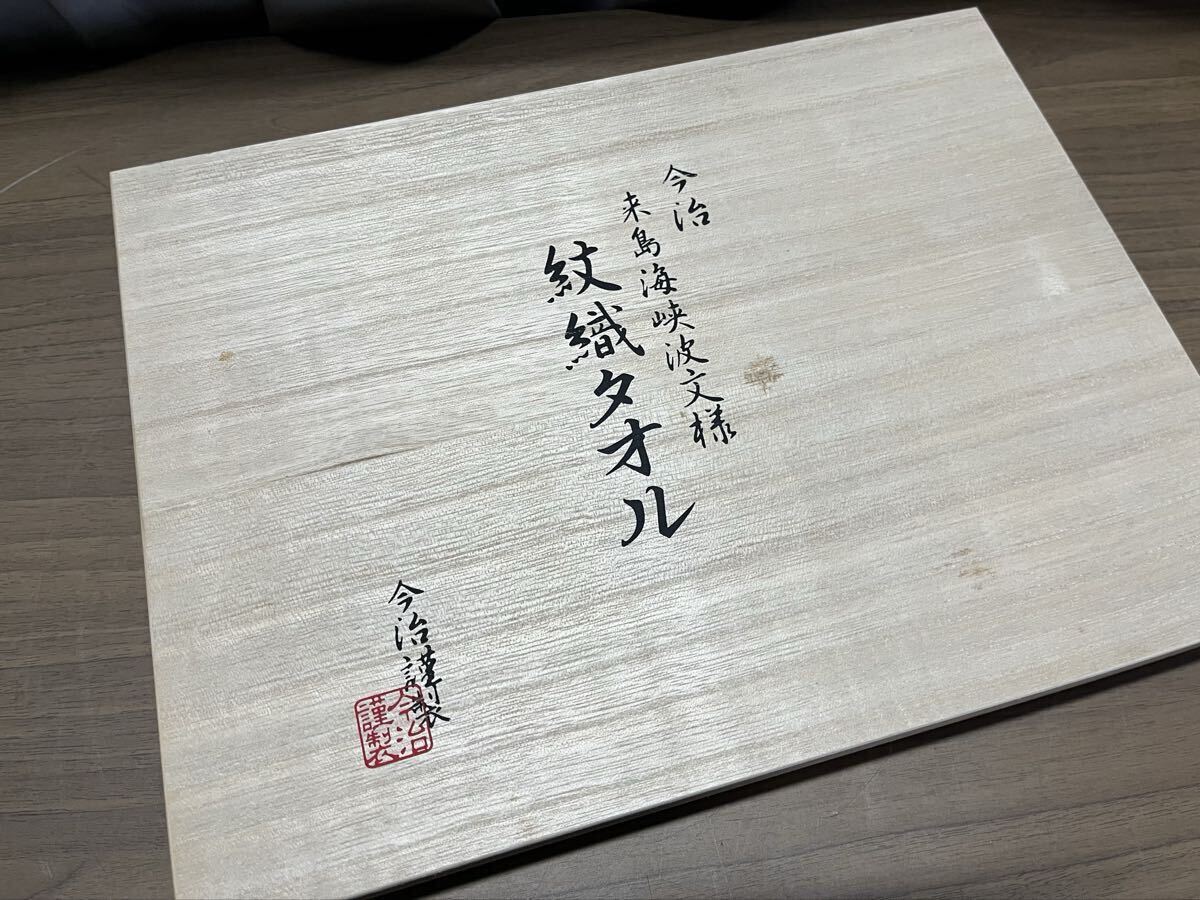 今治
来島海峡波文様
紋織タオル
今治謹製
今治
謹製